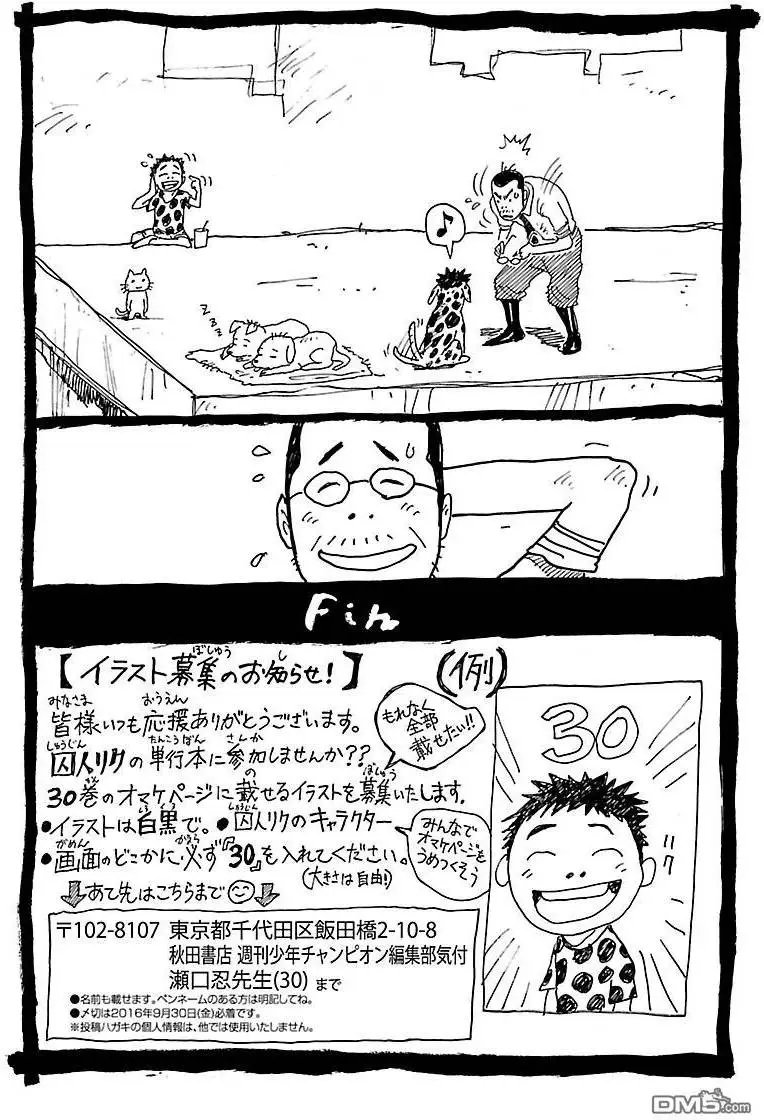 ♪
zzz
Fin
【イラスト募集のお知らせ!】
ぼしゅう し
(例)
みなさま おうえん
皆様いつも応援ありがとうございます。
しゅうじん たんこうぼん さんか
囚人リクの単行本に参加しませんか??
かん の ぼしゅう
30巻のオマケページに載せるイラストを募集いたします。
しろくろ しゅうじん
●イラストは白黒で。●囚人リクのキャラクター
がめん かなら
●画面のどこかに必ず『30』を入れてください。
(大きさは自由!)
⇩あて先はこちらまで☺⇩
もれなく
全部
載せたい!!
みんなで
オマケページを
うめつくそう
30
〒102-8107 東京都千代田区飯田橋2-10-8
秋田書店 週刊少年チャンピオン編集部気付
瀬口忍先生(30) まで
●名前も載せます。ペンネームのある方は明記してね。
●〆切は2016年9月30日(金)必着です。
※投稿ハガキの個人情報は、他では使用いたしません。
DM5.com